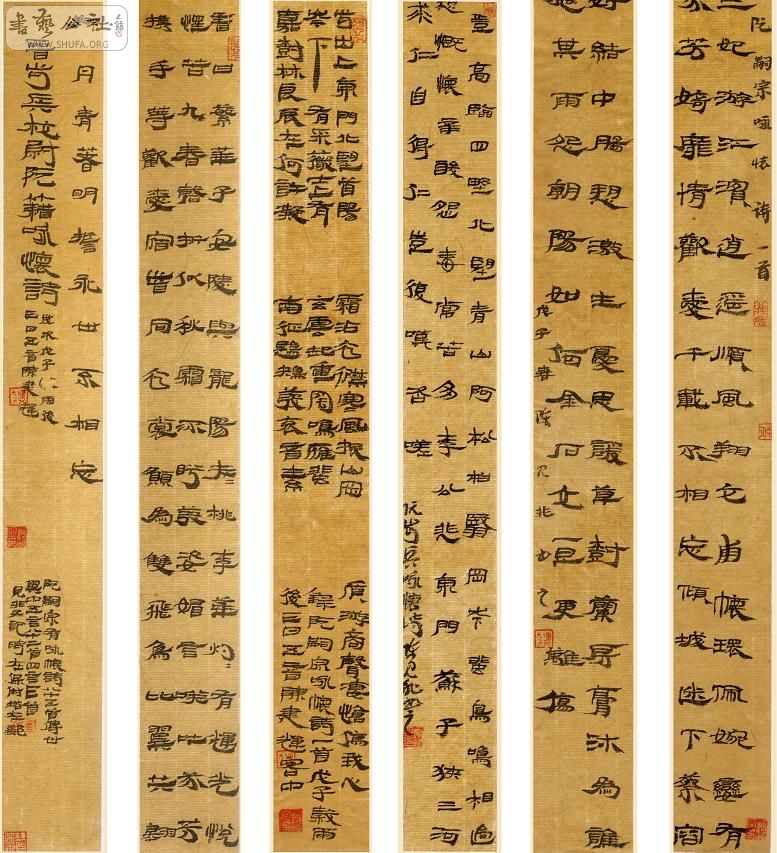 阮嗣宗咏懷詩一首
二妃游江濱逍遥順風翔交甫懷環佩婉孌有
芬芳猗靡情歡愛千載不相忘傾城迷下蔡容
好結中腸想激生憂思諼草樹蘭房膏沐為誰
施其雨怨朝陽如何金石交一旦更離傷
戊子春陳見非書之
登高臨四野北望青山阿松柏翳岡岑飛鳥鳴相過
感慨懷辛酸怨毒常苦多李公悲東門蘇子狹三河
求仁自得仁豈復嘆咨嗟
阮步兵咏懷詩陳見非書之
步出上東門北望首陽
岑下有采薇士上有
嘉樹林良辰在何許凝
霜沾衣襟寒風振山岡
玄雲起重陰鳴雁飛
南征鶗鴂發哀音素
質游商聲凄愴傷我心
錄阮嗣宗咏懷詩一首戊子穀雨
後三日正音陳建輝客中
昔日繁華子安陵與龍陽夭夭桃李華灼灼有輝光悅
懌若九春磬折似秋霜流盼發姿媚言笑吐芬芳
攜手等歡愛宿昔同衣裳願為雙飛鳥比翼共翱
丹青著明誓永世不相忘
晉步兵校尉阮籍咏懷詩
歲次戊子穀雨後
三日正音陳建輝
阮嗣宗有咏懷詩八十五首傳世
其中五言八十二首四言三首
見非又記時在深圳
書藝公社
WWW.SHUFA.ORG